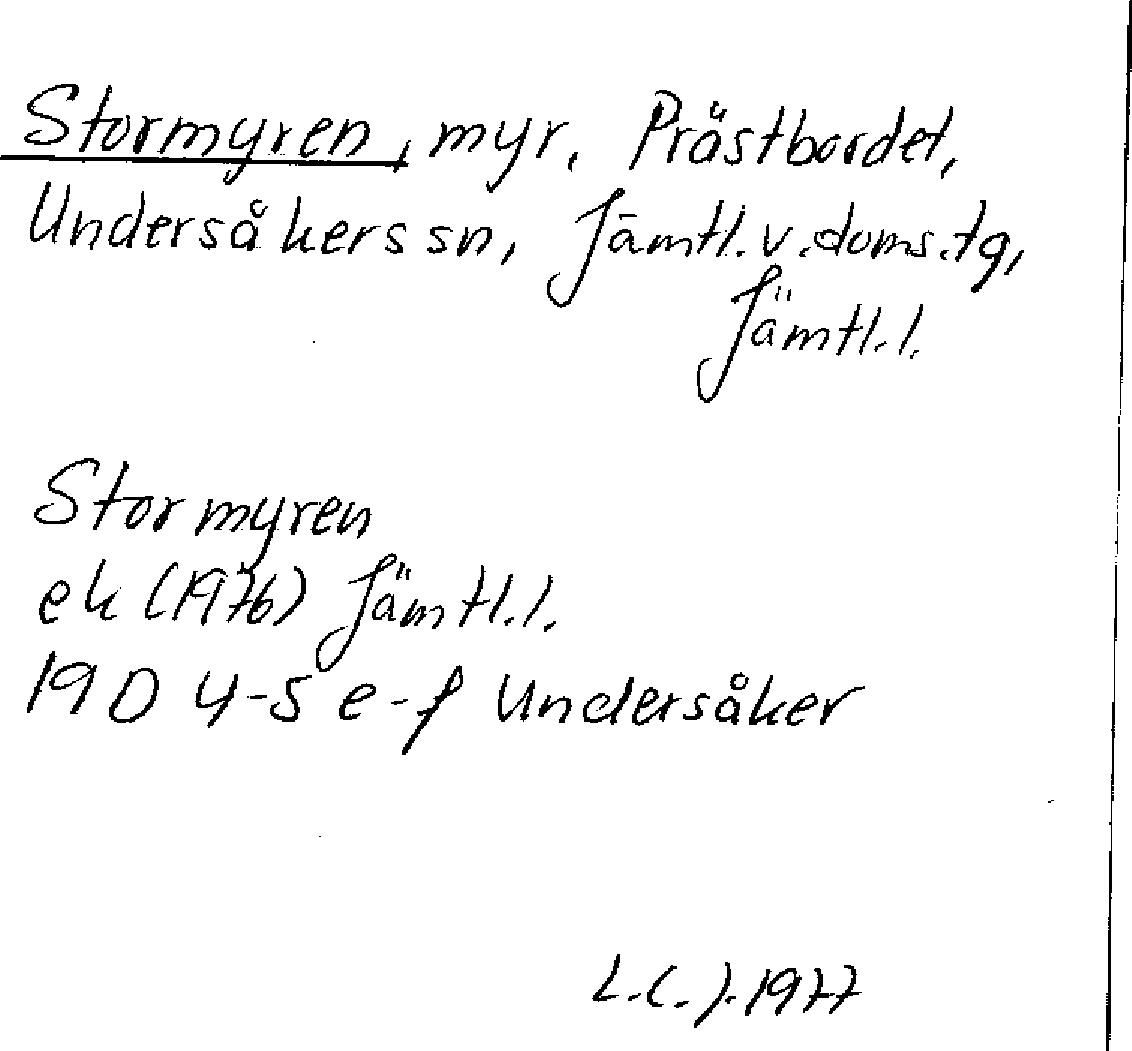 Stormyren, myr, Prästbordet,
Undersåkers sn, Jämtl.v.doms.tg,
Jämtl.l.
Stormyren
ek (1976) Jämtl.l.
19D 4-5 e-f Undersåker
L.C.J.1977